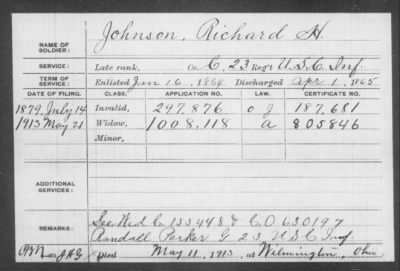 Johnson, Richard H.
NAME OF SOLDIER:
SERVICE: Late rank, Co. C, 23 Reg't U.S.C. Inf.
TERM OF SERVICE: Enlisted Jan 16, 1864 Discharged Apr 1, 1865
DATE OF FILING. CLASS. APPLICATION NO. CERTIFICATE NO.
1879, July 14 Invalid, 297.876 187,681
1913 May 21 Widow, 1008.118 a 805846
Minor,
ADDITIONAL SERVICES:
REMARKS: See Wid C. 155448 & C.O 630197
Randall Parker G 23 U.S.C Inf.
Died May 11, 1913, at Wilmington, Ohio